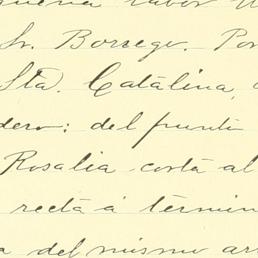 labor
Sr. Borsego. Por
Sta. Catalina,
dero: del punto
Rosalia corta al
recta á termin
a del mismo ar